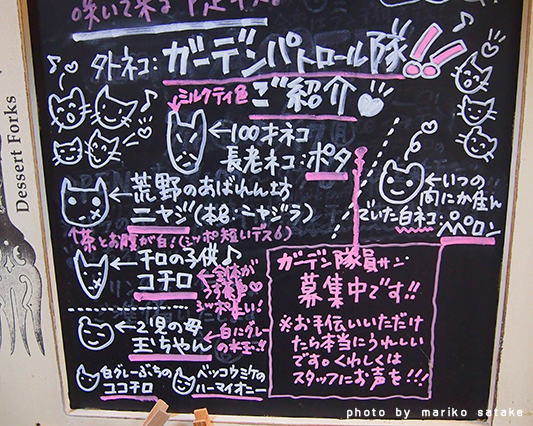 咲いて来る
外ネコ:ガーデンパトロール隊!!
ご紹介
ミルクティ色
←100才ネコ
長老ネコ:ポタ
←荒野のあばれん坊
ニャジ(本名:ニャジラ)
↑茶とお腹が白!(シッポ短いデス)
←いつの
間にか住ん
でいた白ネコ:ペロン
←チロの子供♪
コチロ
←2児の母
玉ちゃん
←白にグレー
の水玉!!
白グレーぶちの
ユコチロ
ベッコウミケの
ハーマイオニー
ガーデン隊員サン
募集中です!!
※お手伝いいただけ
たら本当にうれしい
です。くわしくは
スタッフにお声を!!!
Dessert Forks
photo by mariko satake